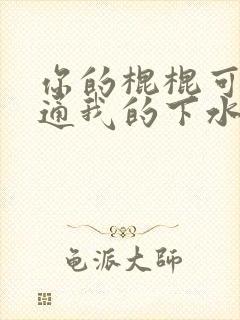 你的棍棍可
通我的下水
龟派大师